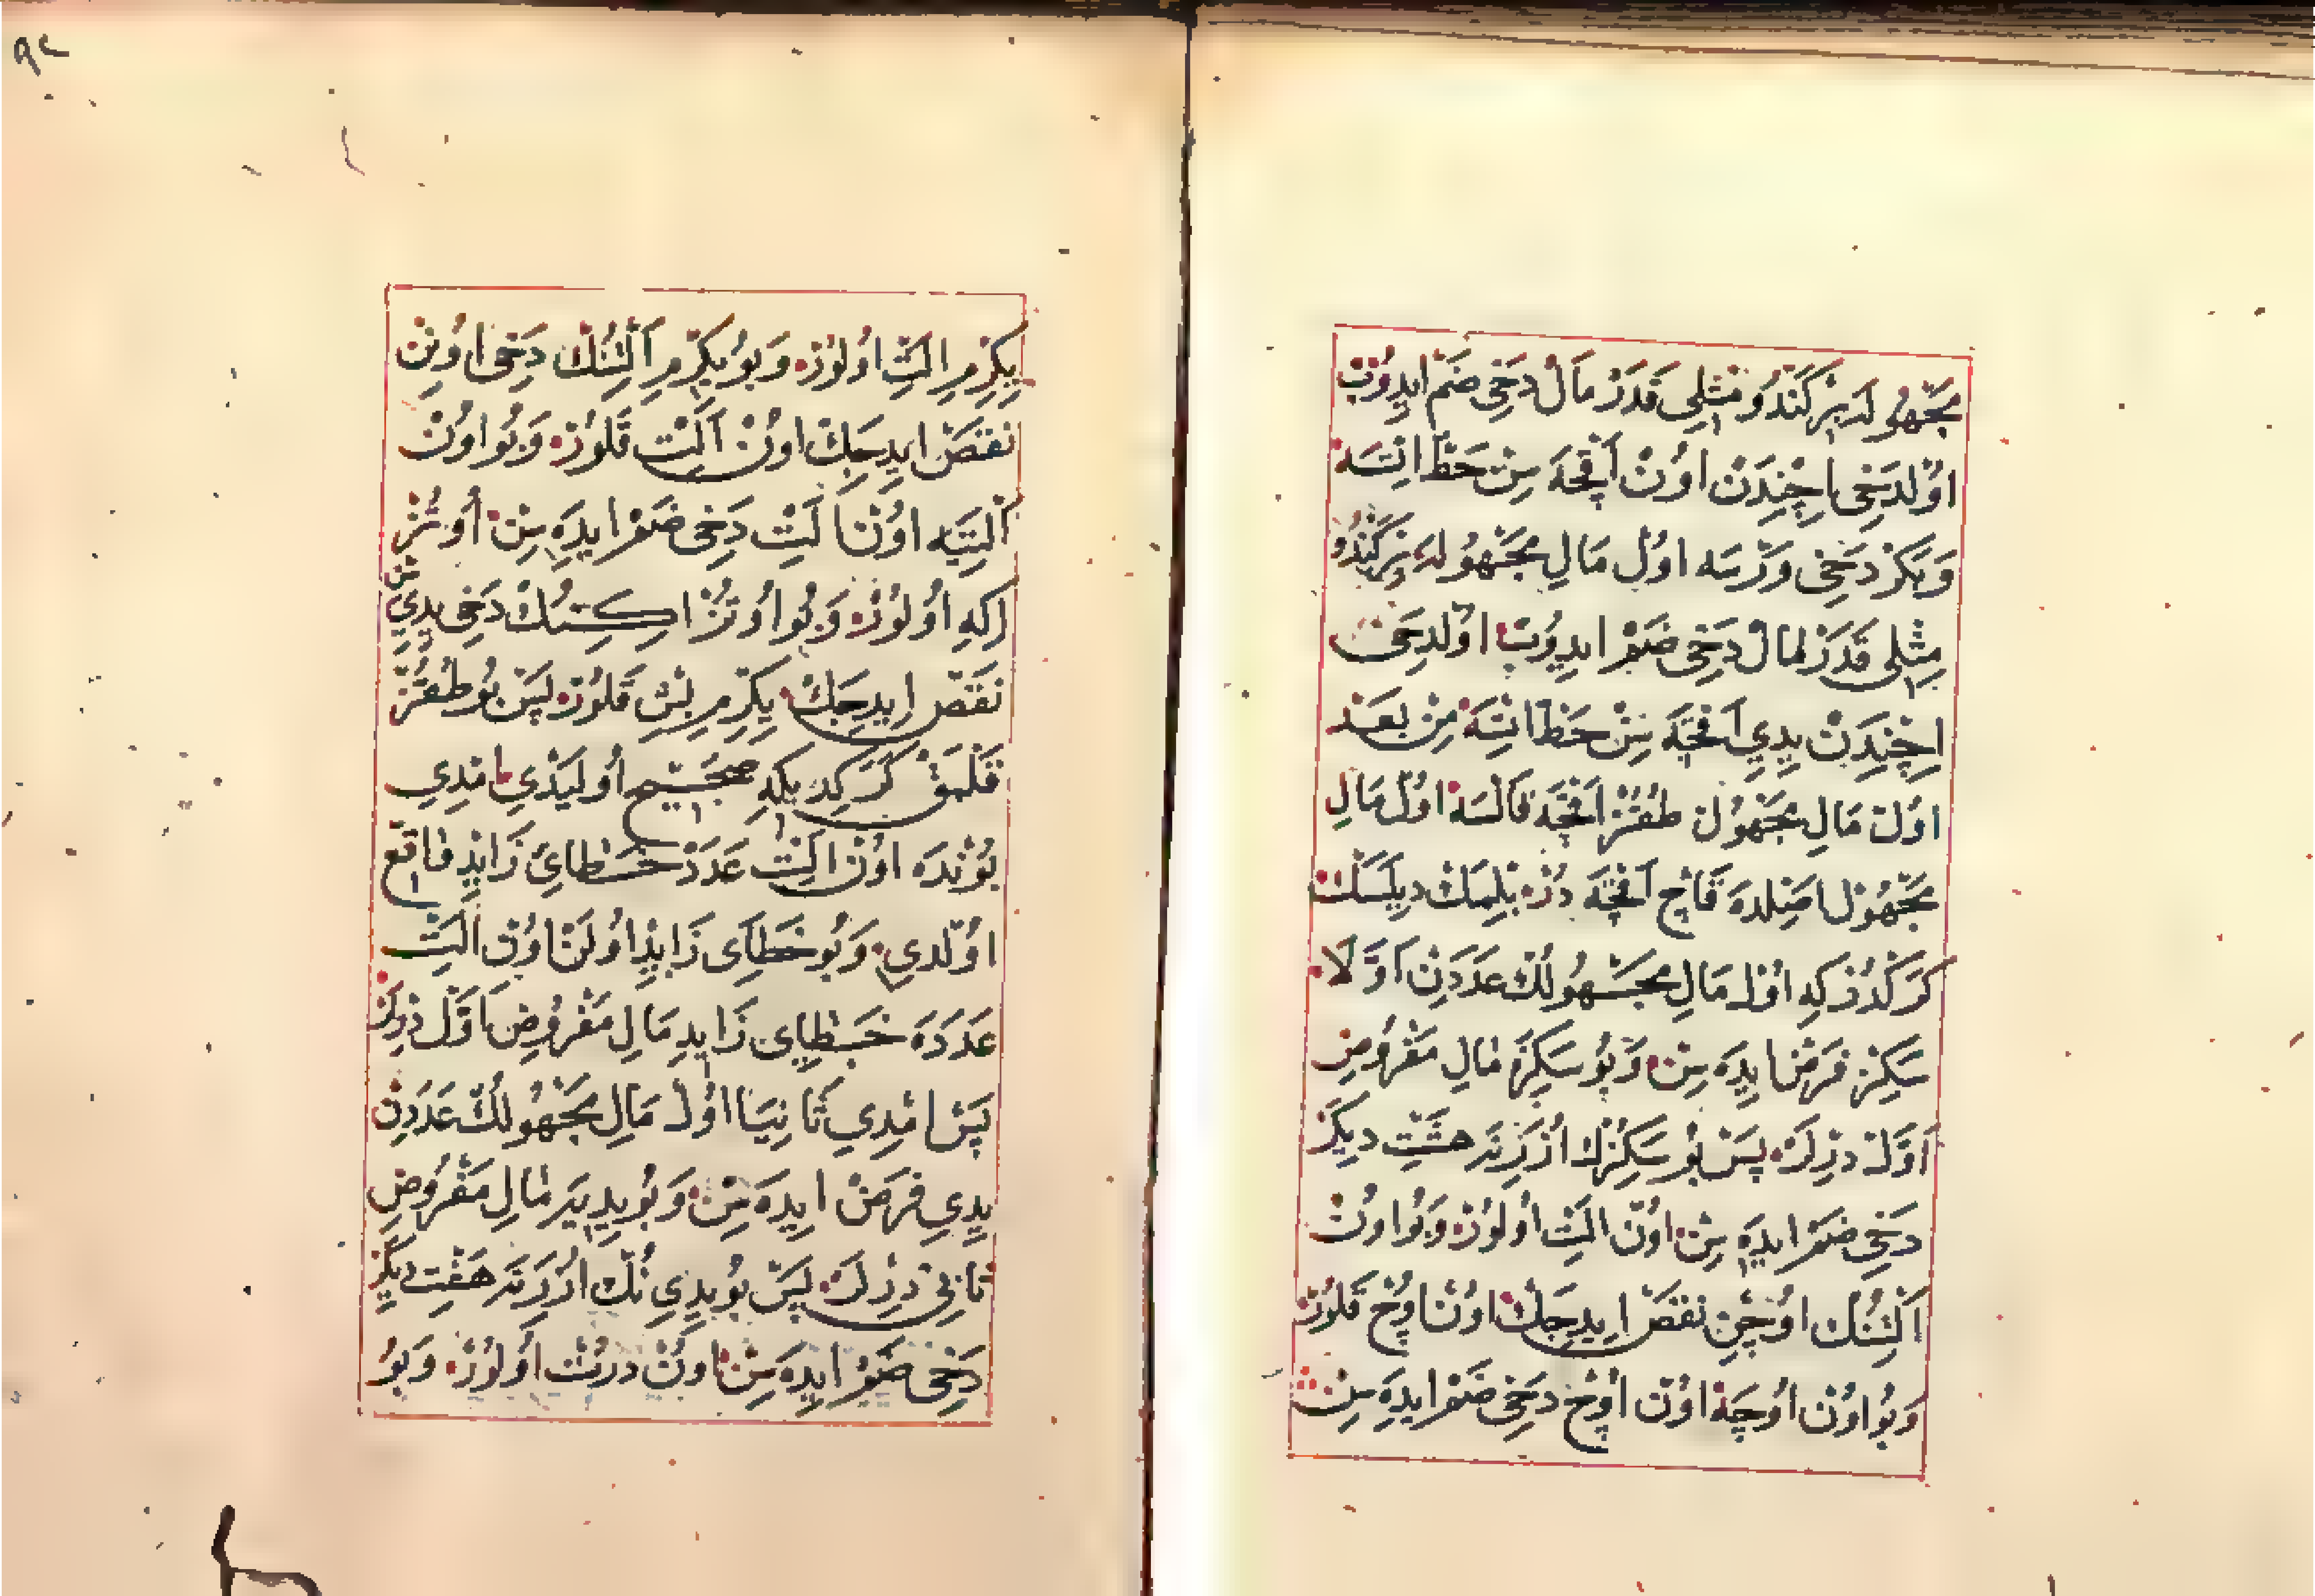 مَجْهُولَه بِرْ كَنْدُو مِثْلِی قَدَرْ مَالْ دَخِی ضَمْ ایدِوُبْ
اوُلْدَخِی اِچِنْدَنْ اوُنْ اَقْچَه سِنْ حَطْ اتْسَه
وَتَكْرْ دَخِی وَرْسَه اوُلْ مَالِ مَجْهُولَه بِرْ كَنْدُو
مِثْلِی قَدَرْ مَالْ دَخِی ضَمْ ایدِوُبْ اوُلْدَخِی
اِچِنْدَنْ یِدِي اَقْچَه سِنْ حَطْ اتْسَه مِنْ بَعْدْ
اوُلْ مَالِ مَجْهُولْ طُقُزْ اَقْچَه قَالْسَه اوُلْ مَالِ
مَجْهُولْ اصْلِنْدَه قَاچْ اَقْچَه دُرْ بِلِمَكْ دِیلَسَكْ
كَرَكْدُرْ كِه اوُلْ مَالِ مَجْهُولُكْ عَدَدِنْ اَوَّلَا
سَكِزْ فَرْضْ ایدَه سِنْ وَبُو سَكِزَه مَالِ مَفْرُوضِ
اَوَّلْ دِرْلَرْ پَسْ بُو سَكِزُكْ اُزَرِنَه هَشْتِ دِیكَرْ
دَخِی ضَمْ ایدَه سِنْ اوُنْ الْتِ اوُلُورْ وَبُو اوُنْ
اَلْتِنُكْ اوُچِنْ نَقْضْ ایدِجَكْ اوُنْ اوُچْ قَلُورْ
وَبُو اوُنْ اوُچَه اوُنْ اوُچْ دَخِی ضَمْ ایدَه سِنْ
٩٢
یِكِرْمِ الْتِ اوُلُورْ وَبُو یِكِرْمِ اَلْتِنُكْ دَخِی اوُنِنْ
نَقْضْ ایدِجَكْ اوُنْ اَلْتِ قَلُورْ وَبُو اوُنْ
اَلْتِیَه اوُنْ اَلْتِ دَخِی ضَمْ ایدَه سِنْ اُوتُزْ
اِكِه اوُلُورْ وَبُو اوُتُزْ اكِنُكْ دَخِی یِدِي سِنْ
نَقْضْ ایدِجَكْ یِكِرْمِ بَشْ قَلُورْ پَسْ بُو طُقُزْ
قَلْمَقْ كَرَكِدِ بكِه صَحِیح اُولَیْدِي امْدِي
بُونْدَه اوُنْ الْتِ عَدَدْ خَطَایِ زَایِدْ وَاقِعْ
اوُلْدِي وَبُو خَطَایِ زَایِدْ اوُلَنْ اوُنْ اَلْتِ
عَدَدَه خَطَایِ زَایِدِ مَالِ مَفْرُوضِ اَوَّلْ دِرْلَرْ
پَسْ امْدِي ثَانِیَا اوُلْ مَالِ مَجْهُولُكْ عَدَدِنْ
یِدِي فَرْضْ ایدَه سِنْ وَبُو یِدِیَه مَالِ مَفْرُوضِ
ثَانِی دِرْلَرْ پَسْ بُو یِدِي نُكْ اُزَرِنَه هَفْتِ دِیكَرْ
دَخِی ضَمْ ایدَه سِنْ اوُنْ دُرْتْ اوُلُورْ وَبُو